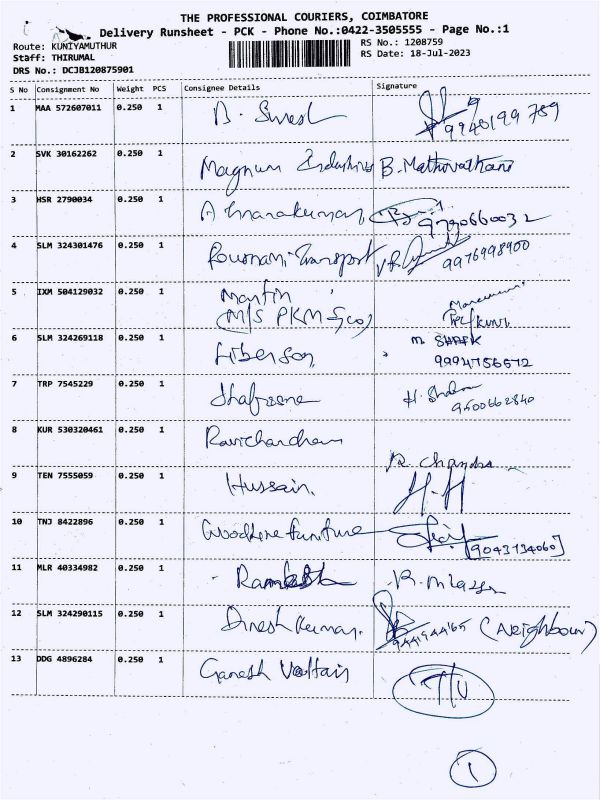 THE PROFESSIONAL COURIERS, COIMBATORE
Delivery Runsheet - PCK - Phone No.:0422-3505555 - Page No.:1
Route: KUNIYAMUTHUR
RS No.: 1208759
Staff: THIRUMAL
RS Date: 18-Jul-2023
DRS No.: DCJB120875901
S No Consignment No Weight PCS Consignee Details Signature
1 MAA 572607011 0.250 1 B. Suresh
9940199789
2 SVK 30162262 0.250 1 Magnum Industries B. Mathivathani
3 HSR 2790034 0.250 1
9790660032
4 SLM 324301476 0.250 1 Transport
9976998900
5 IXM 504129032 0.250 1 Martin
M/S PKM & co)
6 SLM 324269118 0.250 1 Liberson M
9994756572
7 TRP 7545229 0.250 1 H.
9500662840
8 KUR 530320461 0.250 1 Ravichandran
R. Chandra
9 TEN 7555059 0.250 1 Hussain. H-H
10 TNJ 8422896 0.250 1 Furniture
11 MLR 40334982 0.250 1
12 SLM 324290115 0.250 1 Dinesh Kumar. (Neighbour)
13 DDG 4896284 0.250 1 Ganesh
1